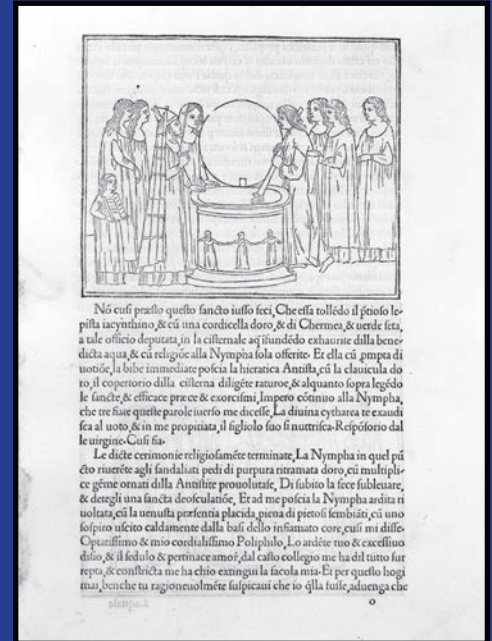 Nõ cusi præsto questo sancto iusso feci, Che essa tollẽdo il p̃tioso le-
pista iacynthino, & cũ una cordicella doro, & di Chermea, & uerde seta,
a tale officio deputata, in la cisternale aq̃ ifundẽdo exhaurite dilla bene-
dicta aqua, & cũ religiõe alla Nympha sola offerite. Et ella cũ ,pmpta di
uotiõe, la bibe immediate poscia la hieratica Antista, cũ la clauicula do
ro, il copertorio dilla cisterna diligẽte raturoe, & alquanto sopra legẽdo
le sancte, & efficace præce & exorcismi, Impero cõtinuo alla Nympha,
che tre fiate queste parole iuerso me dicesse, La diuina cytharea te exaudi
sca al uoto, & in me propitiata, il figliolo suo si nuttrisca. Respõsorio dal
le uirgine. Cusi fia.
Le dicte cerimonie religiosamẽte terminate, La Nympha in quel pũ
cto riuerẽte agli sandaliati pedi di purpura ritramata doro, cũ multipli-
ce gẽme ornati dilla Antistite prouolutase, Di subito la fece subleuare,
& detegli una sancta deosculatiõe, Et ad me poscia la Nympha ardita ri
uoltata, cũ la uenusta præsentia placida, piena di pietosi sembiãti, cũ uno
sospiro uscito caldamente dalla basi dello infiamato core, cusi mi disse.
Optatissimo & mio cordialissimo Poliphilo, Lo ardẽte tuo & excessiuo
disio, & il sedulo & pertinace amor̃, dal casto collegio me ha dil tutto sur
repta, & constricta me ha chio extingui la facola mia. Et per questo hogi
mai, benche tu ragioneuolmẽte suspicaui che io q̃lla fusse, aduenga che
o